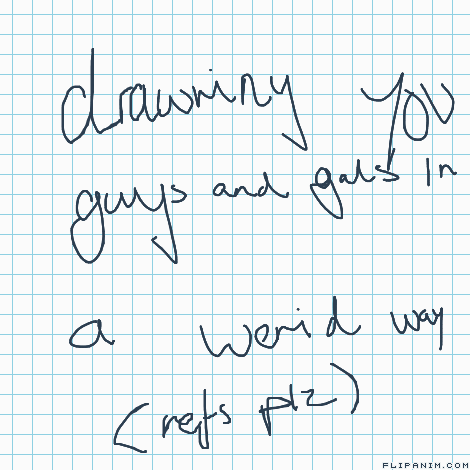 drawriny you
guys and gals in
a werid way
(refs plz)
FLIPANIM.COM